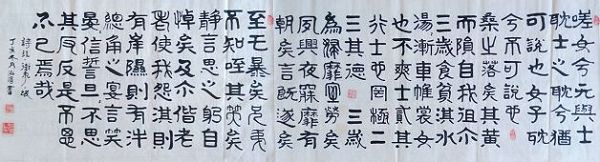 嗟女兮无與士
耽士之耽兮猶
可說也女子耽
兮不可說也
桑之落矣其黃
而隕自我徂尒
三歲食貧淇水
湯漸車帷裳女
也不爽士貳其
行士也罔極二
三其德 三歲
為婦靡室勞矣
夙興夜寐靡有
朝矣言既遂矣
至于暴矣兄弟
不知咥其笑矣
靜言思之躬自
悼矣及尒偕老
老使我怨淇則
有岸隰則有泮
總角之宴言笑
晏信誓旦不思
其反反是不思
亦已焉哉
詩經衛風氓
丁亥冬月 書